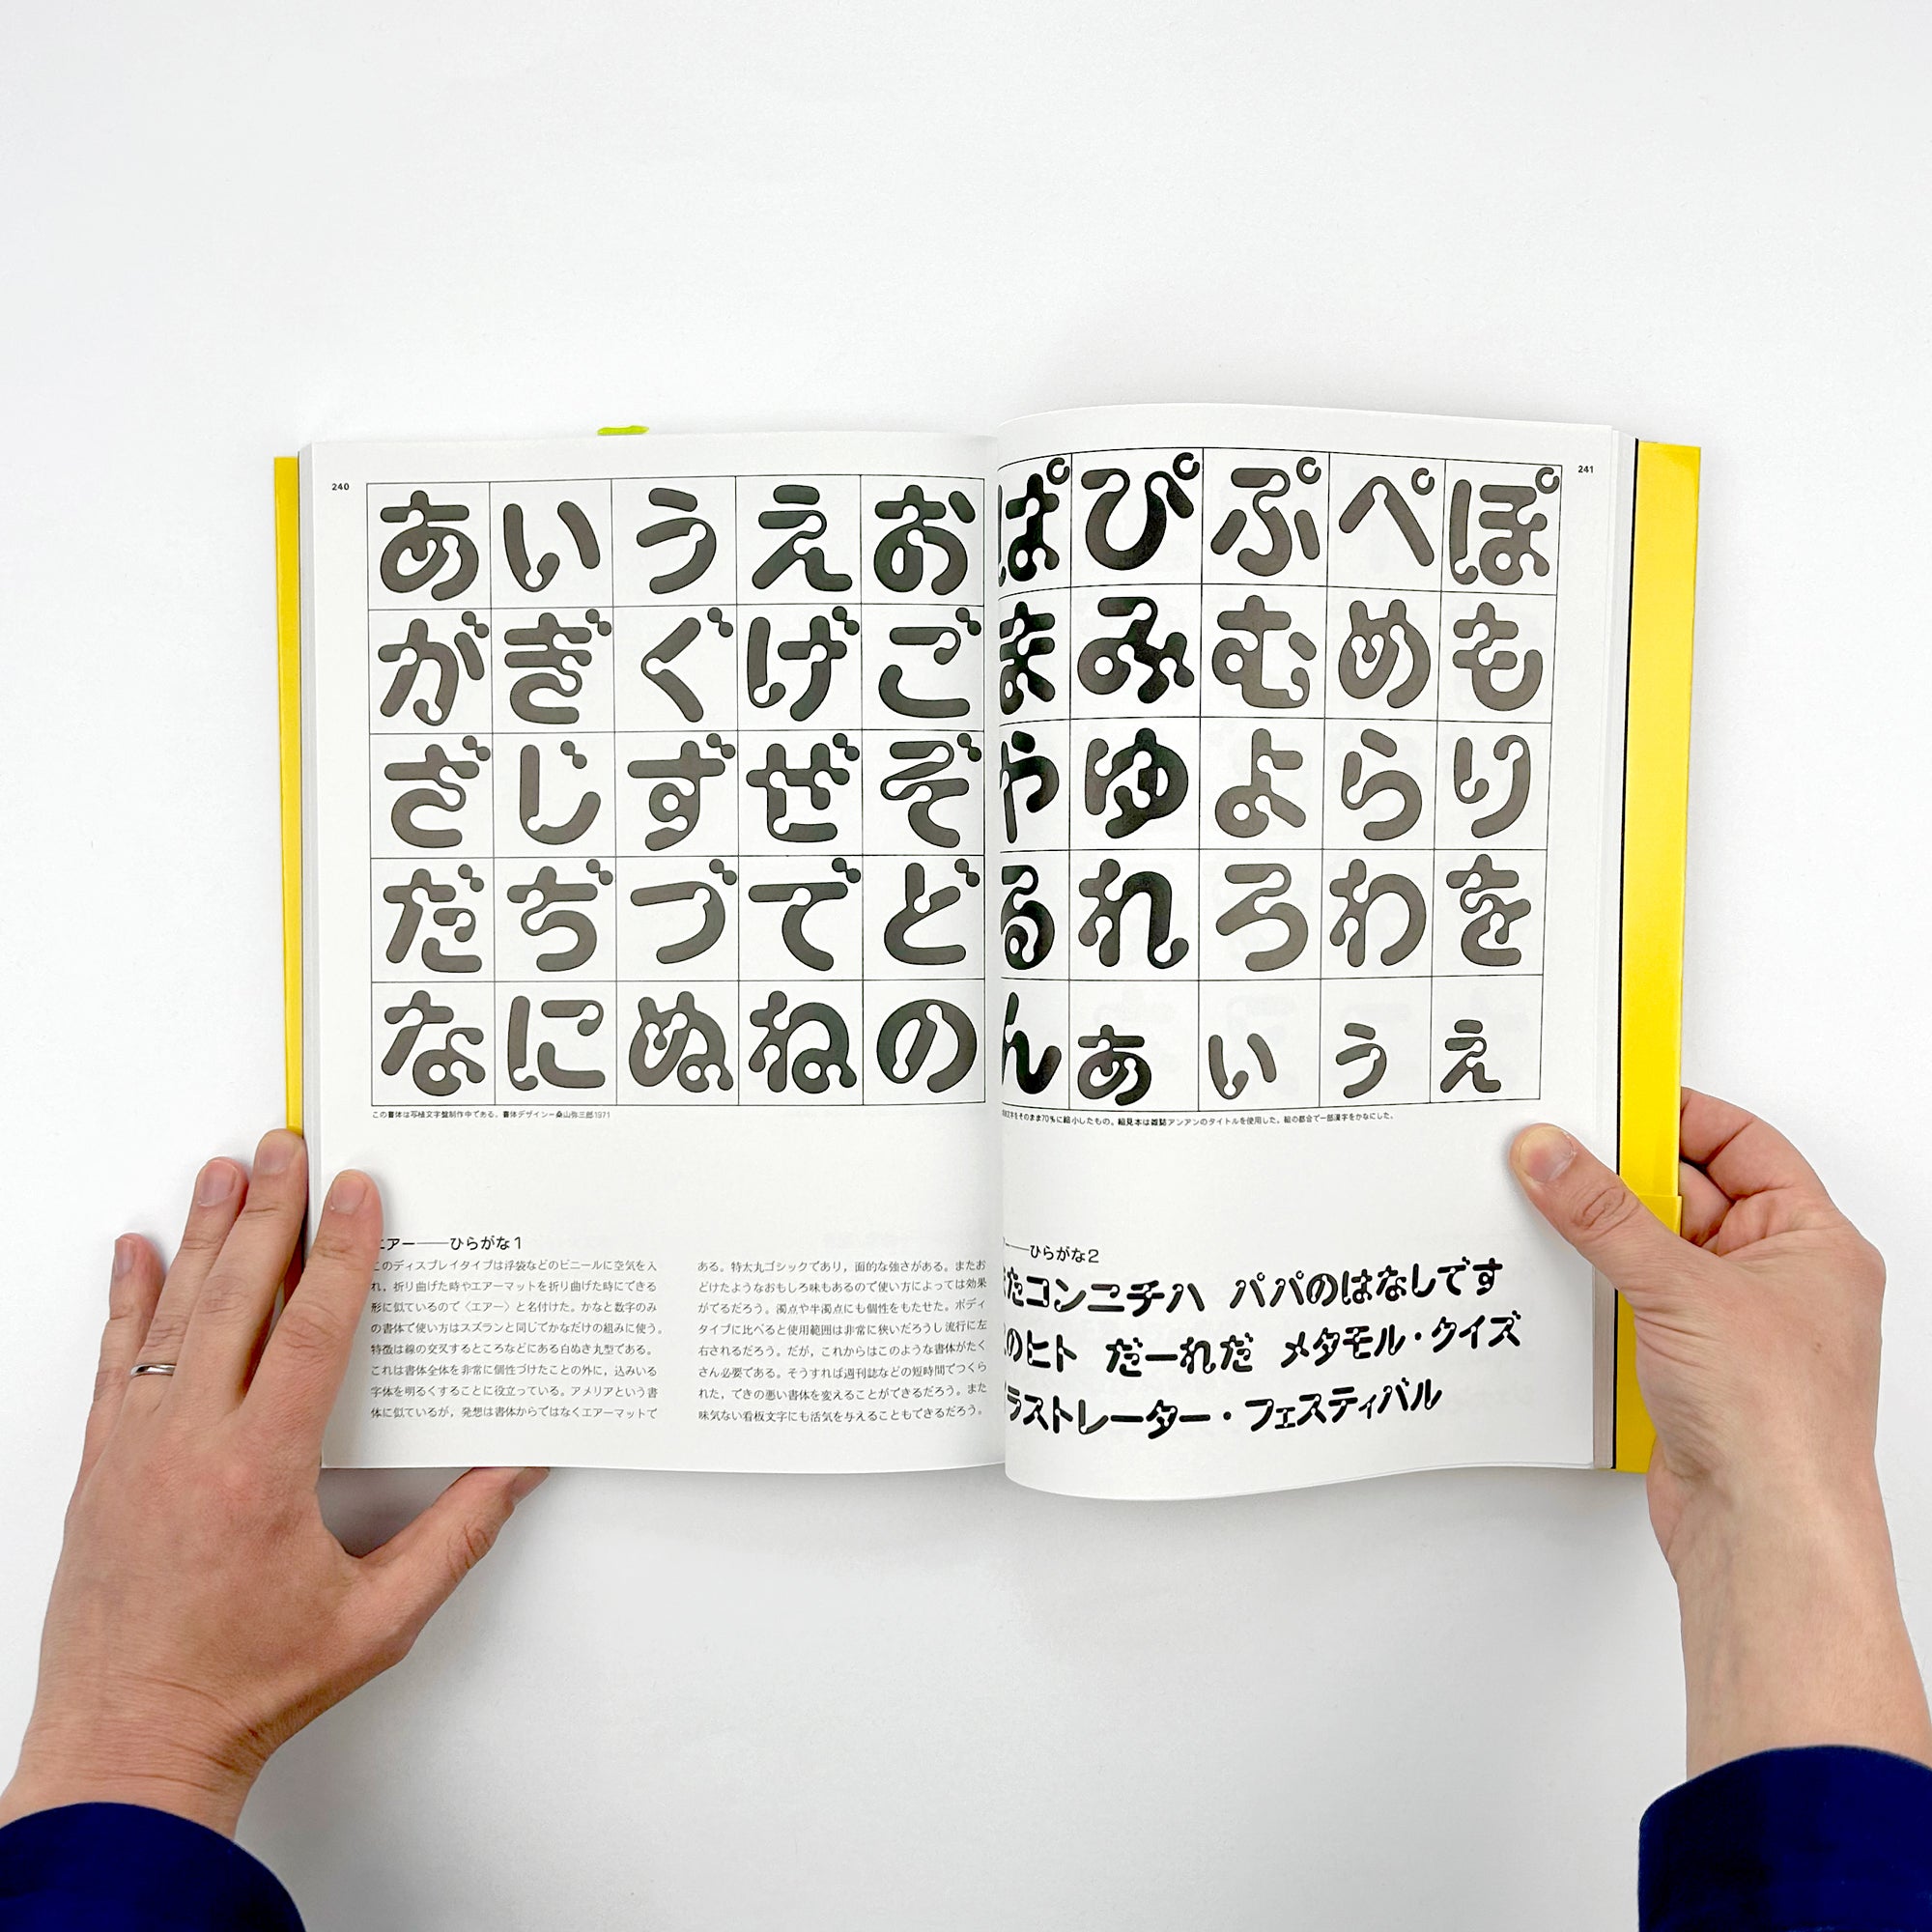 240
あ い う え お
が ぎ ぐ げ ご
ざ じ ず ぜ ぞ
だ ぢ づ で ど
な に ぬ ね の
この書体は写植文字盤制作中である。書体デザイン—桑山弥三郎1971
エアー——ひらがな1
このディスプレイタイプは浮袋などのビニールに空気を入
れ，折り曲げた時やエアーマットを折り曲げた時にできる
形に似ているので〈エアー〉と名付けた。かなと数字のみ
の書体で使い方はスズランと同じでかなだけの組みに使う。
特徴は線の交叉するところなどにある白ぬき丸型である。
これは書体全体を非常に個性づけたことの外に，込みいる
字体を明るくすることに役立っている。アメリアという書
体に似ているが，発想は書体からではなくエアーマットで
ある。特太丸ゴシックであり，面的な強さがある。またお
どけたようなおもしろ味もあるので使い方によっては効果
がでるだろう。濁点や半濁点にも個性をもたせた。ボディ
タイプに比べると使用範囲は非常に狭いだろうし流行に左
右されるだろう。だが，これからはこのような書体がたく
さん必要である。そうすれば週刊誌などの短時間でつくら
れた，できの悪い書体を変えることができるだろう。また
味気ない看板文字にも活気を与えることもできるだろう。
241
ぱ ぴ ぷ ぺ ぽ
ま み む め も
や ゆ よ ら り
る れ ろ わ を
ん あ い う え
文字をそのまま70%に縮小したもの。組見本は雑誌アンアンのタイトルを使用した。組の都合で一部漢字をかなにした。
——ひらがな2
たコンニチハ パパのはなしです
のヒト だーれだ メタモル・クイズ
ラストレーター・フェスティバル